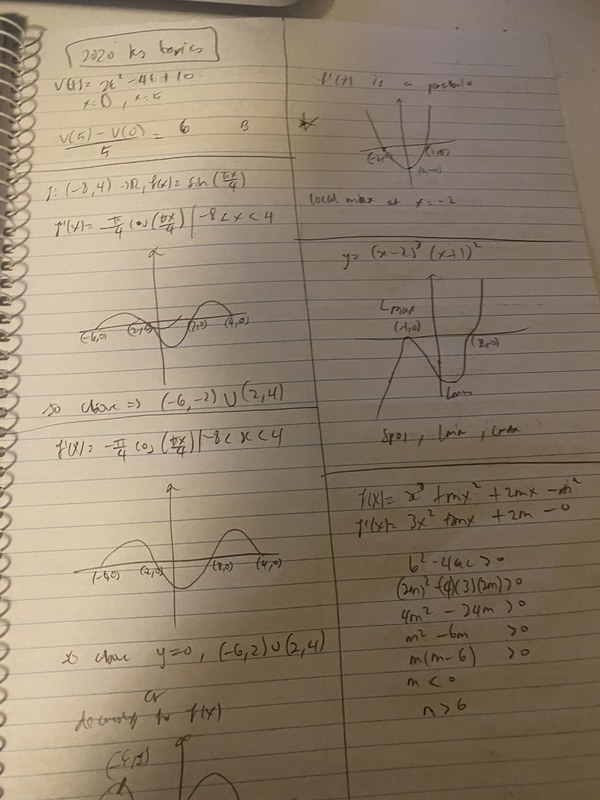 2020 topics
V(t) = 2t² - 4t + 10
t = 0, t = 5
V(5) - V(0)
5
= 6 B
f: (-8,4) → R, f(x) = sin (πx/4)
f'(x) = -π/4 cos (πx/4) | -8 < x < 4
(-6,0) (2,0) (2,0) (4,0)
so above => (-6,-2) ∪ (2,4)
f'(x) = -π/4 cos (πx/4) | -8 < x < 4
(-6,0) (2,0) (2,0) (4,0)
above y=0, (-6,2) ∪ (2,4)
or
f(x)
f'(x) is a parabola
local max at x = -2
y = (x-2)³ (x+1)²
Lmax
(-1,0)
(2,0)
Lmin
SPOI, Lmin, Lmax
f(x) = x³ + mx² + 2mx - m²
f'(x) = 3x² + 2mx + 2m - 0
b² - 4ac > 0
(2m)² - (4)(3)(2m) > 0
4m² - 24m > 0
m² - 6m > 0
m(m-6) > 0
m < 0
m > 6